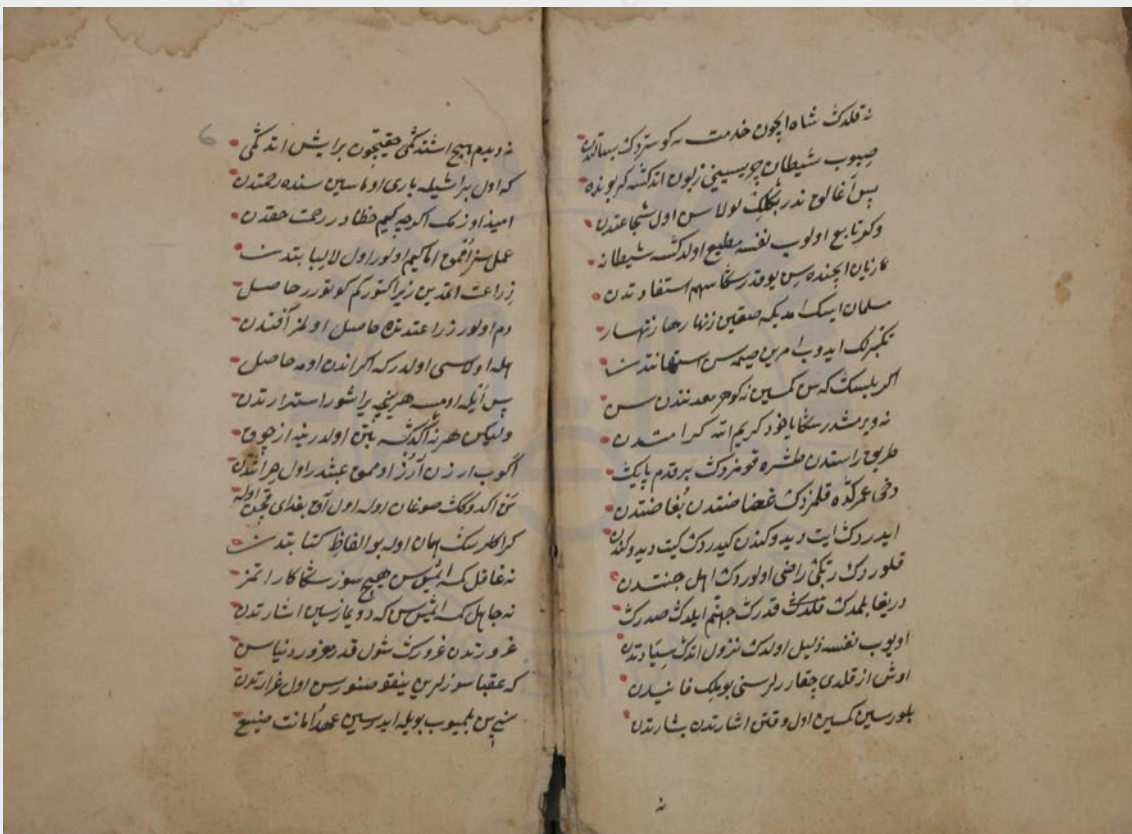 نه قلدك شاه ايچون خدمت نه كوستردك بسالتدن
صيوب شيطان چريسيني زبون اتدكسه كر بونده
پس آغالوح ندر بكلك بولاسن اول شجاعتدن
وكر تابع اولوب نفسه مطيع اولدكسه شيطانه
زيان ايچنده سن بو قدر سكا سهم استفادتدن
مسلمان ايسك امديكه صقين زنهار ها زنهار
تكبرلك ايدوب امرين صيمه سن استهانتدن
اكر بلسك كه سن كمسين نه كوهر معدنندن سن
نه ويرمشدر سكا يا خود كريم الله كرامتدن
طريق راستدن طشره قومزدك بر قدم پايك
دخى عمركده قلمزدك غضاضتدن بغاضتدن
ايدردك ايت ديدوكندن كيدردك كيت ديدوكندن
قلوردك ربكى راضى اولوردك اهل جنتدن
دريغا بلمدك قلدك قدرك جهنم ايلدك صدرك
اويوب نفسه ذليل اولدك نزول اتدك سيادتدن
اوش از قلدى چقارلر سنى بو ملك فانيدن
بلورسين كمسين اول وقتن اشارتدن بشارتدن
نه
6
نه ويدم هيچ اشتدكمى حقيچون بر ايش اتدكمى
كه اول بر اشيله بارى اوماسين سنده رحمتدن
اميد اوزمك اكرچه كيم خطادر رحمت حقدن
عملسز اوممق اما كيم اولور اول لاليبابتدن
زراعت اتمدين زيرا كتور كم كوتورر حاصل
دم اولور زراعتدنده حاصل اولمز آفتدن
اهله اولاسى اولدركه اكر اندن اومه حاصل
پس آيله اومسه هر نيچه يراشور استرارتدن
وليكن هر نه اكدكسه بتن اولدر نه از چوق
اكوب ارزن آرز اوممق عبثدر اول حراثتدن
سن اكدوكك صوغان اوله اول آق بغداى قچن اوله
كر اكلرسك همان اوله بو الفاظ كنايتدن
نه غافل كمسه ايمش سن هيچ سوز سكا كار اتمز
نه جاهل كمسه ايمش سن كه دويمازسين اشارتدن
غرورتدن غرورك شول قدر مغرور دنياسن
كه عقبا سوزلرين ينقو صنورسن اول غرارتدن
سنى سن بلميوب بويله ايدرسين عهد امانت ضيع